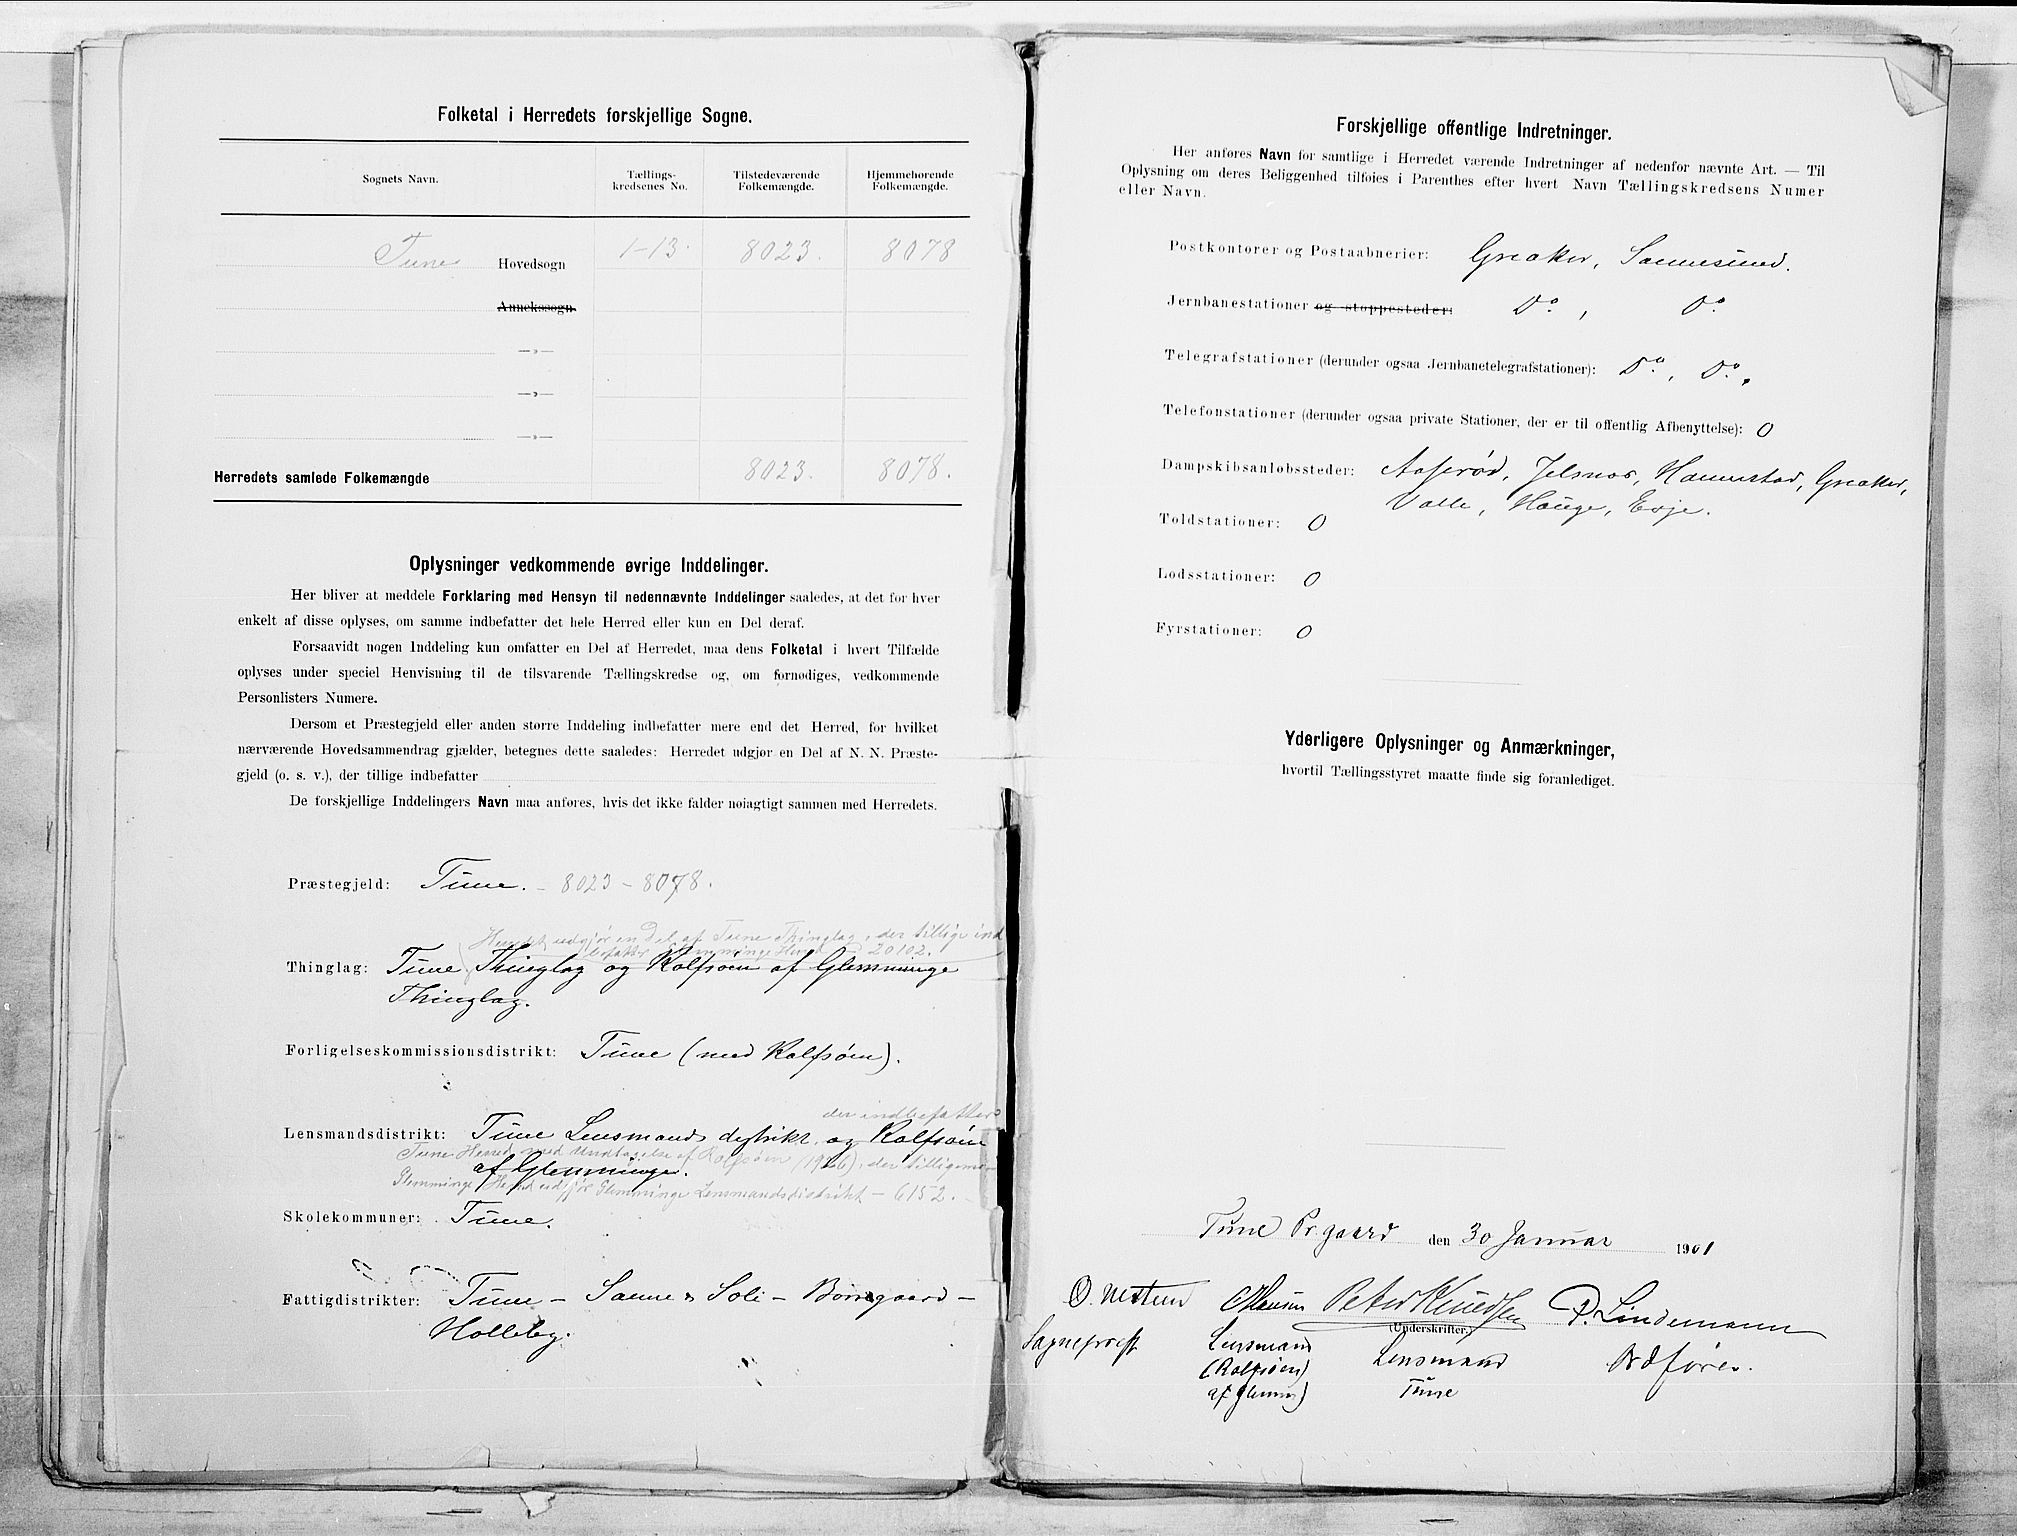 Folketal i Herredets forskjellige Sogne.
Sognets Navn.
Tællings-
kredsenes No.
Tilstedeværende
Folkemængde.
Hjemmehørende
Folkemængde.
Tune Hovedsogn 1-13. 8023. 8078
Annekssogn.
—»—
—»—
—»—
Herredets samlede Folkemængde 8023. 8078.
Oplysninger vedkommende øvrige Inddelinger.
Her bliver at meddele Forklaring med Hensyn til nedennævnte Inddelinger saaledes, at det for hver
enkelt af disse oplyses, om samme indbefatter det hele Herred eller kun en Del deraf.
Forsaavidt nogen Inddeling kun omfatter en Del af Herredet, maa dens Folketal i hvert Tilfælde
oplyses under speciel Henvisning til de tilsvarende Tællingskredse og, om fornødiges, vedkommende
Personlisters Numere.
Dersom et Præstegjeld eller anden større Inddeling indbefatter mere end det Herred, for hvilket
nærværende Hovedsammendrag gjælder, betegnes dette saaledes: Herredet udgjør en Del af N. N. Præste-
gjeld (o. s. v.), der tillige indbefatter
De forskjellige Inddelingers Navn maa anføres, hvis det ikke falder nøiagtigt sammen med Herredets.
Præstegjeld: Tune. – 8023 – 8078.
Herredet udgjør en Del af Tune Thinglag, der tillige ind
befatter Glemminge Herred 20102.
Thinglag: Tune Thinglag og Rolfsøen af Glemminge
Thinglag.
Forligelseskommissionsdistrikt: Tune (med Rolfsøen).
der indbefatter
Lensmandsdistrikt: Tune Lensmands distrikt og Rolfsøen
Tune Herred med Undtagelse af Rolfsøen (1926), der tillige
af Glemminge.
Glemminge Herred udgjør Glemminge Lensmandsdistrikt – 6152.
Skolekommuner: Tune.
Fattigdistrikter: Tune – Sanne & Soli – Borregaard –
Holleby.
Forskjellige offentlige Indretninger.
Her anføres Navn for samtlige i Herredet værende Indretninger af nedenfor nævnte Art. — Til
Oplysning om deres Beliggenhed tilføies i Parenthes efter hvert Navn Tællingskredsens Numer
eller Navn.
Postkontorer og Postaabnerier: Greaker, Sannesund.
Jernbanestationer og stoppesteder: Do, Do
Telegrafstationer (derunder ogsaa Jernbanetelegrafstationer): Do, Do.
Telefonstationer (derunder ogsaa private Stationer, der er til offentlig Afbenyttelse): 0
Dampskibsanløbssteder: Aaserød, Jelsnes, Hannestad, Greaker,
Valle, Hauge, Evje.
Toldstationer: 0
Lodsstationer: 0
Fyrstationer: 0
Yderligere Oplysninger og Anmærkninger,
hvortil Tællingsstyret maatte finde sig foranlediget.
Tune Pr.gaard den 30 Januar 1901
O. Nesteen C Hansen Peter Knudsen P. Lindemann
(Underskrifter.)
Sognepræst Lensmand Lensmand Ordfører
(Rolfsøen Tune
af Glemm.)